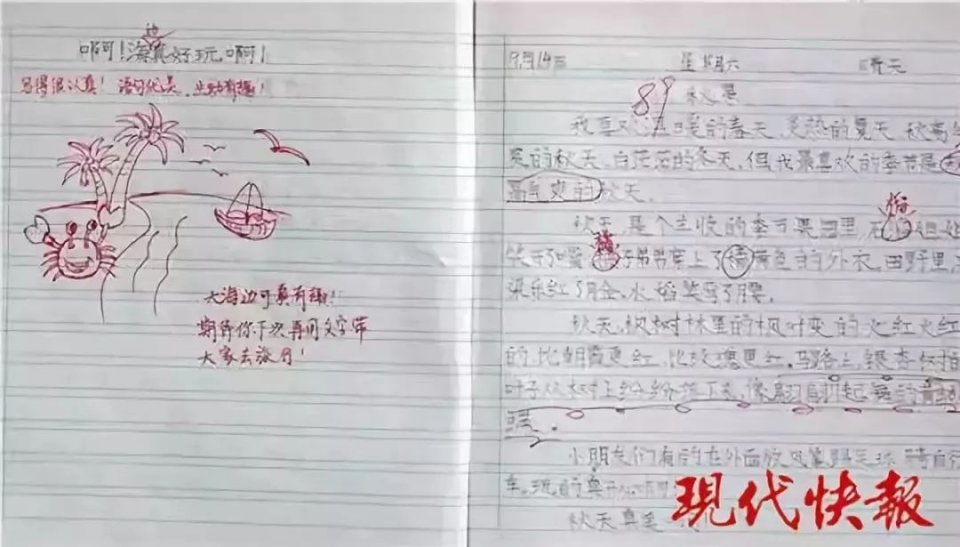 啊！海边真好玩啊！
写得很认真！语句优美、生动有趣！
大海边可真有趣！
期待你下次再用文字带
大家去游月！
9月14日 星期六 晴天
89 秋景
我喜欢温暖的春天、炎热的夏天、秋高气
爽的秋天、白茫茫的冬天，但我最喜欢的季节是秋
高气爽的秋天。
秋天，是个丰收的季节果园里，石榴姐姐
笑开了嘴 橘子弟弟穿上了橘黄色的外衣，田野里
高粱乐红了脸，水稻笑弯了腰。
秋天，枫树林里的枫叶变的火红火红
的，比朝霞更红，比玫瑰更红，马路上，银杏树
叶子从树上纷纷落下来，像翩翩起舞的黄蝴
蝶。
小朋友们有的在外面放风筝踢足球 骑自行
车，玩的真开心啊
秋天真美
现代快報